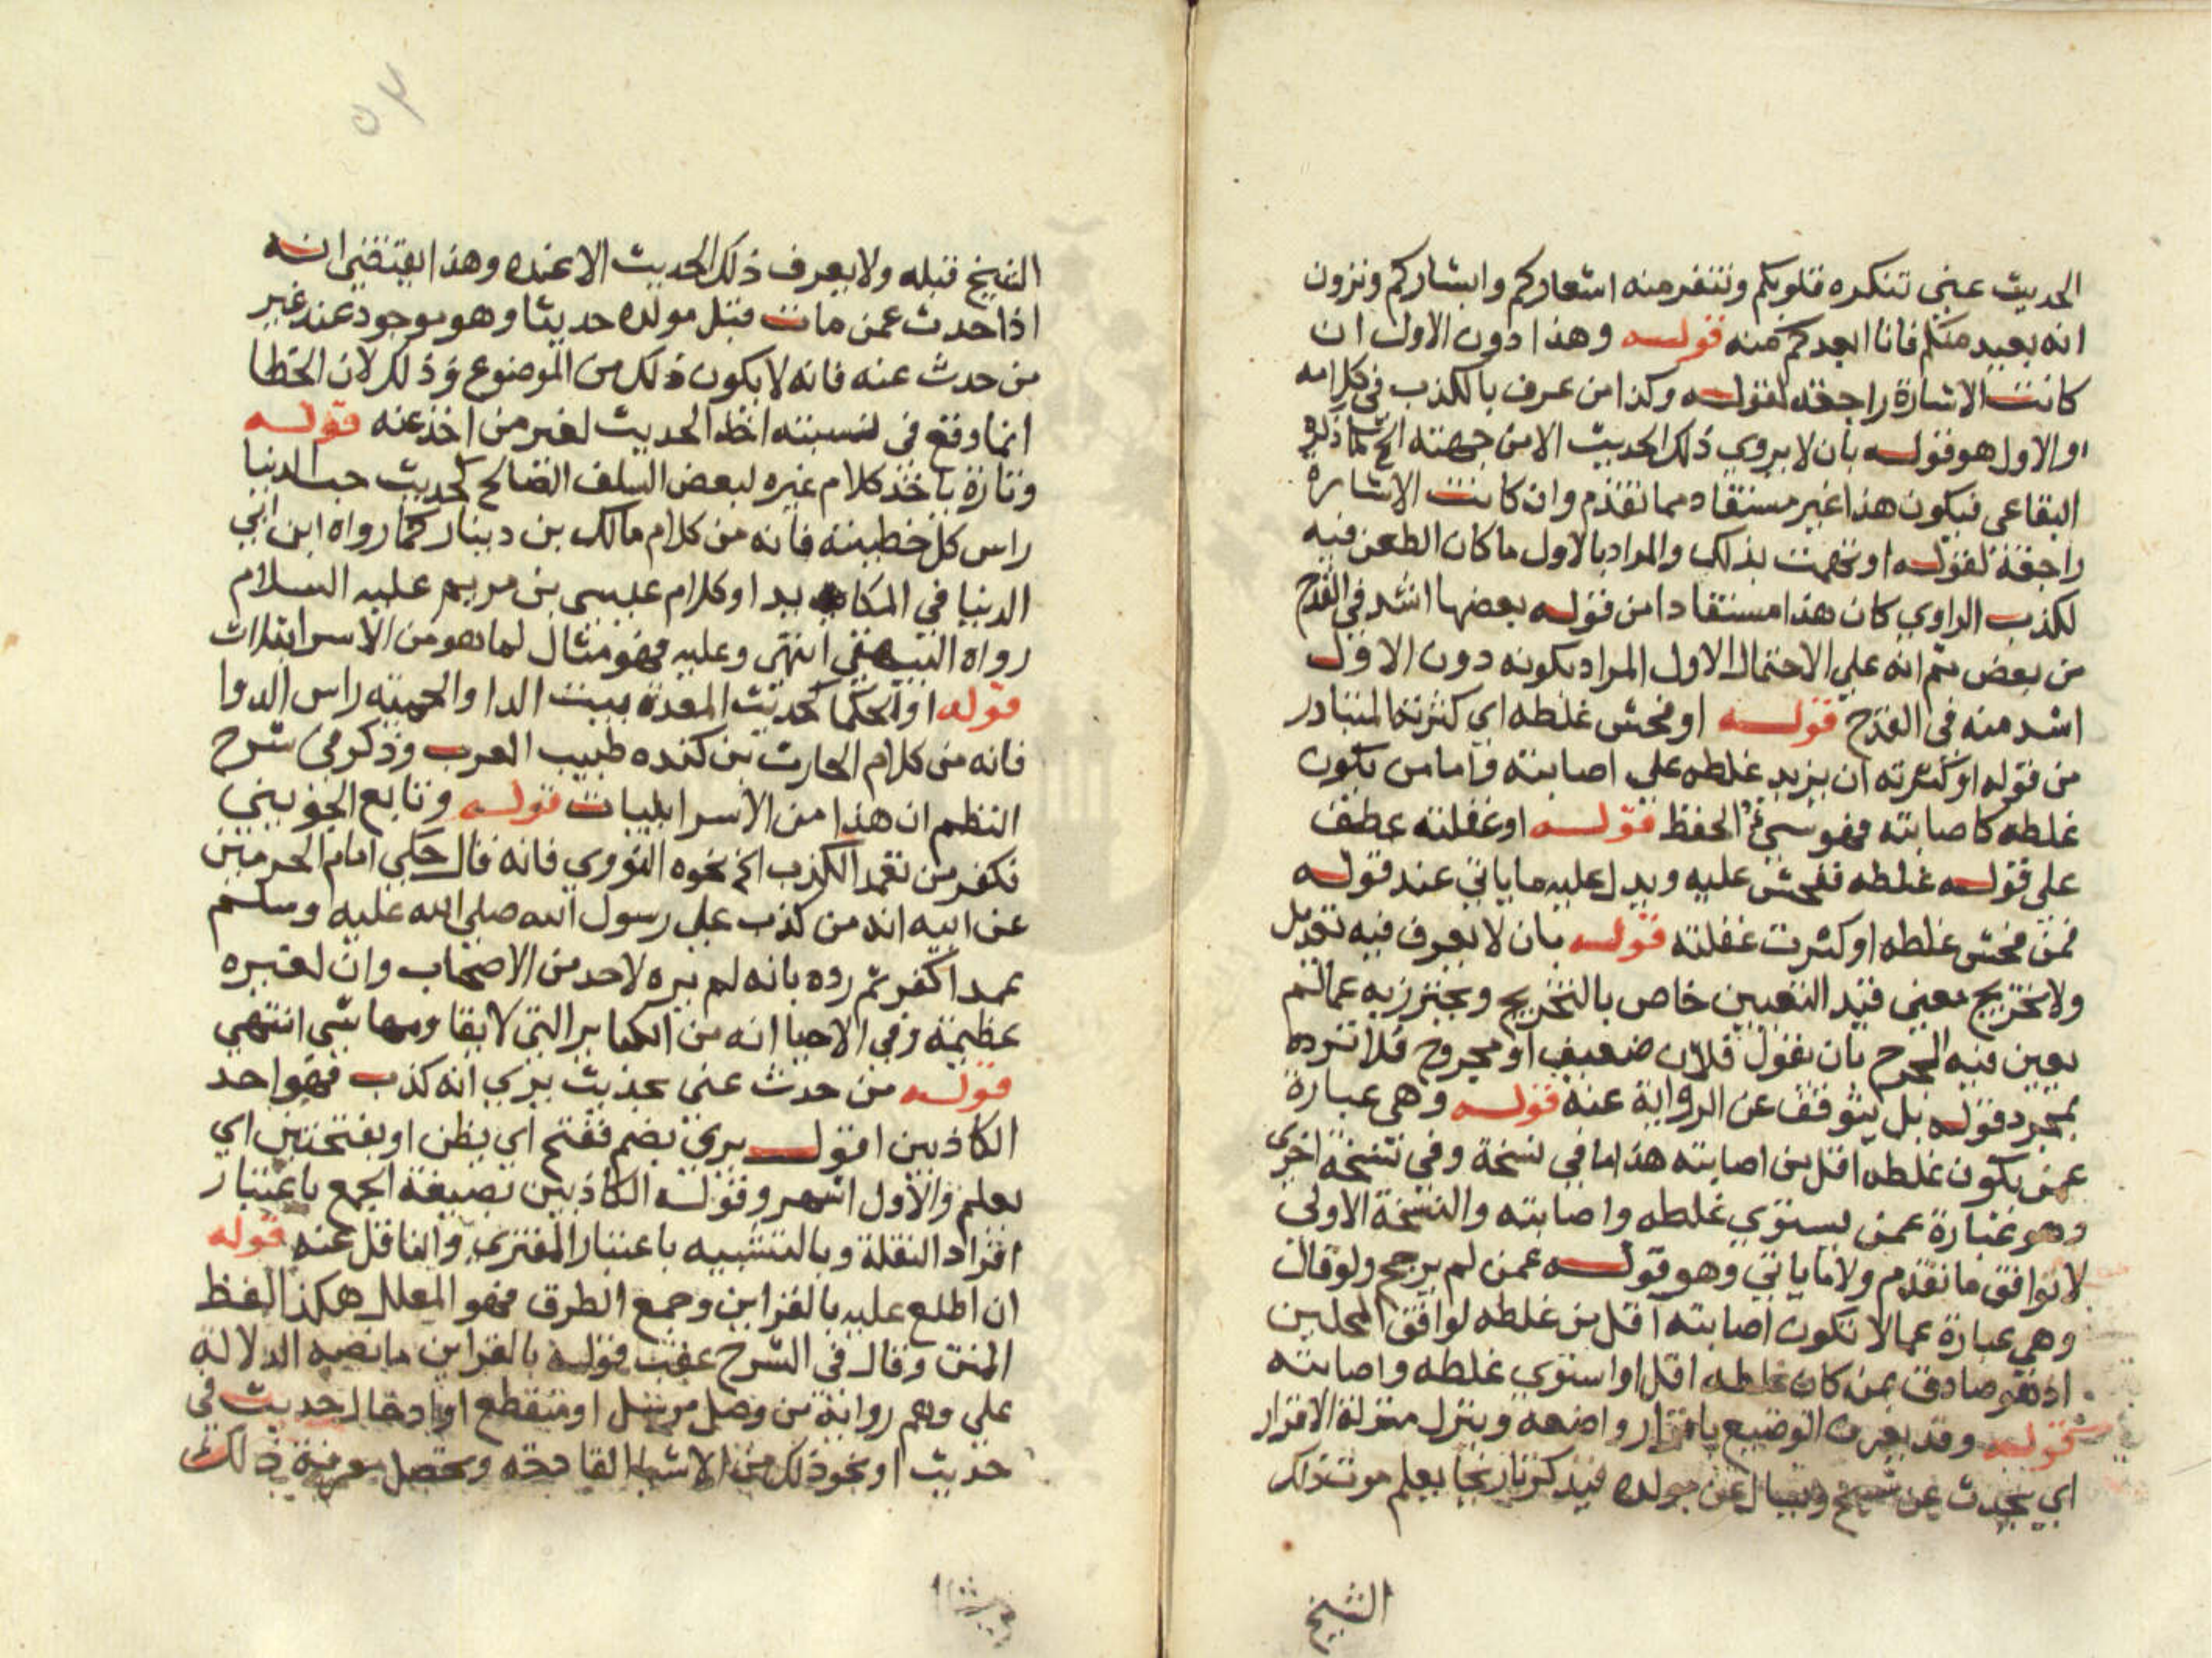 الحديث عني تنكره قلوبكم وتنفر منه اشعاركم وابشاركم وترون
انه بعيد منكم فانا ابعدكم منه قوله وهذا دون الاول ان
كانت الاشارة راجعة لقوله وكذا من عرف بالكذب في كلامه
والاول هو قوله بان لا يروي ذلك الحديث الا من جهته الخ كما ذكره
البقاعي فيكون هذا غير مستفاد مما تقدم وان كانت الاشارة
راجعة لقوله او تهمت بذلك والمراد بالاول ما كان الطعن فيه
لكذب الراوي كان هذا مستفادا من قوله بعضها اشد في القدح
من بعض ثم انه علي الاحتمال الاول المراد بكونه دون الاول
اشد منه في القدح قوله او فحش غلطه اي كثرته المتبادر
من قوله او كثرته ان يزيد غلطه على اصابته واما من يكون
غلطه كاصابته فهو سيئ الحفظ قوله او غفلته عطف
على قوله غلطه ففحش عليه ويدل عليه ماياتي عند قوله
فمن فحش غلطه او كثرت غفلته قوله بان لا يعرف فيه تعديل
ولا تخريج معين قيد التعيين خاص بالتخريج ويحترز به عمالم
يعين فيه الجرح بان يقول فلان ضعيف او مجروح فلا ترده
بمجرد قوله بل يتوقف عن الرواية عنه قوله وهي عبارة
عمن يكون غلطه اقل من اصابته هذا ما في نسخة وفي نسخة اخري
وهو عبارة عمن يستوي غلطه واصابته والنسخة الاولي
لا توافق ما تقدم ولا ما ياتي وهو قوله عمن لم يرجح ولو قال
وهي عبارة عما لا تكون اصابته اقل من غلطه لوافق المحلين
اذ هو صادق بمن كان غلطه اقل او استوي غلطه واصابته
قوله وقد يعرف الوضيع باقرار واضعه وينزل منزلة الاقرار
اي يحدث عن شيخ ويسال عن مولده فيذكر تاريخا يعلم موت ذلك
الشيخ
الشيخ قبله ولا يعرف ذلك الحديث الا عنده وهذا يقتضي انه
اذا حدث عمن مات قبل مولده حديثا وهو موجود عند غير
من حدث عنه فانه لا يكون ذلك من الموضوع وذلك لان الخطا
انما وقع في نسبته اخذ الحديث لغير من اخذ عنه قوله
وتارة ياخذ كلام غيره لبعض السلف الصالح كحديث حب الدنيا
راس كل خطيئة فانه من كلام مالك بن دينار كما رواه ابن ابي
الدنيا في المكايد او كلام عيسى بن مريم عليه السلام
رواه البيهقي انتهى وعليه فهو مثال لما هو من الاسرائيلات
قوله او الحكما كحديث المعدة بيت الدا والحمية راس الدوا
فانه من كلام الحارث بن كنده طبيب العرب وذكر في شرح
النظم ان هذا من الاسرايليات قوله وتابع الجويني
فكفر من تعمد الكذب الخ نحوه النووي فانه قال حكي امام الحرمين
عن ابيه انه من كذب على رسول الله صلى الله عليه وسلم
عمدا كفر ثم رده بانه لم يره لاحد من الاصحاب وان لعتبره
عظيمة وفي الاحيا انه من الكباير التي لا يقاومها شي انتهي
قوله من حدث عني بحديث يري انه كذب فهو احد
الكاذبين اقول يري بضم ففتح اي يظن او بفتحتين اي
يعلم والاول اشهر وقوله الكاذبين بصيغة الجمع باعتبار
افراد النقلة وبالتثنيه باعتبار المفتري والناقل عنه قوله
ان اطلع عليه بالقراين وجمع الطرق فهو المعلل هكذا لفظ
المتن وقال في الشرح عقب قوله بالقراين ما نصه الدلالة
على وهم رواية من وصل مرسل او منقطع او ادخال حديث في
حديث او نحو ذلك من الاشيا القادحة وتحصل معرفة ذلك